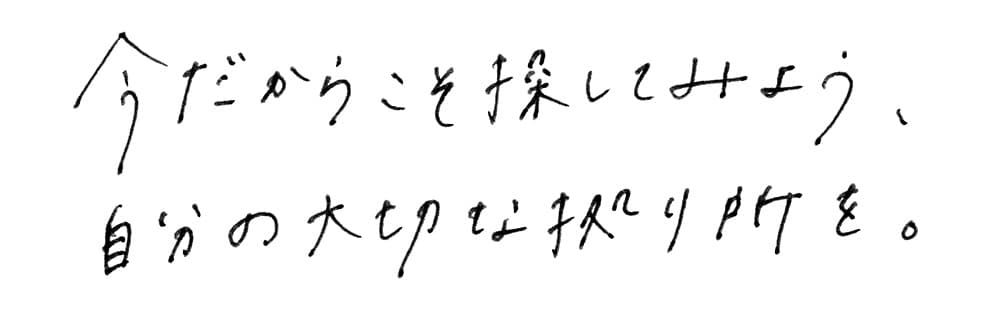 今だからこそ探してみよう、
自分の大切な拠り所を。